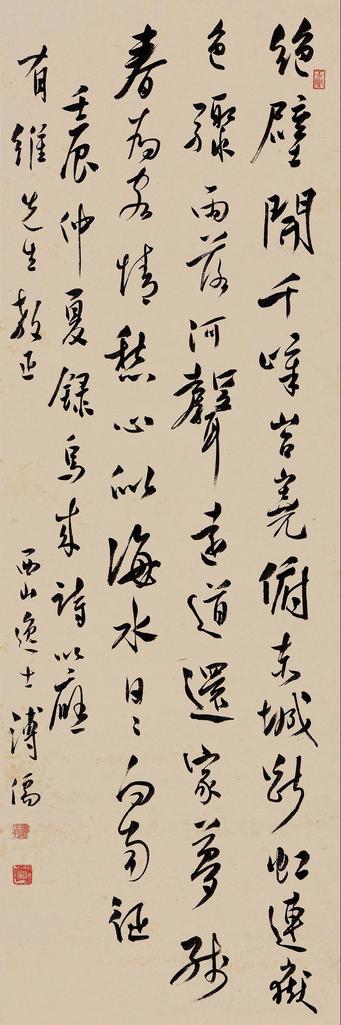 絕壁開千嶂岧嶢俯赤城斷虹連嶽
色驟雨落河聲遠道還家夢殘
春為客情愁心似海水日〻向南征
壬辰仲夏錄烏來詩以應
有維先生教正 西山逸士溥儒